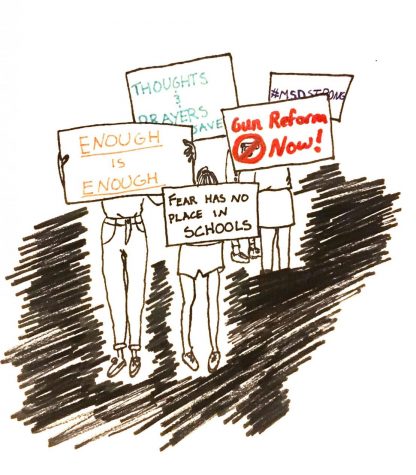 THOUGHTS
&
PRAYERS
SAVE
#MSDSTRONG
Gun Reform
Now!
ENOUGH
IS
ENOUGH
FEAR HAS NO
PLACE IN
SCHOOLS